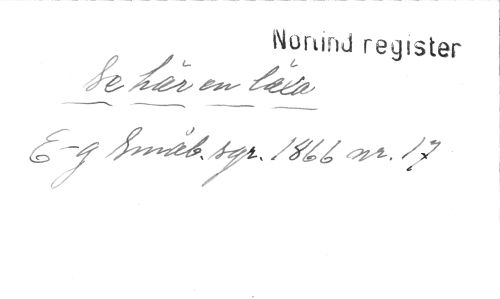 Norlind register
Se här en läxa
E-g Småb. sgr. 1866 nr. 17